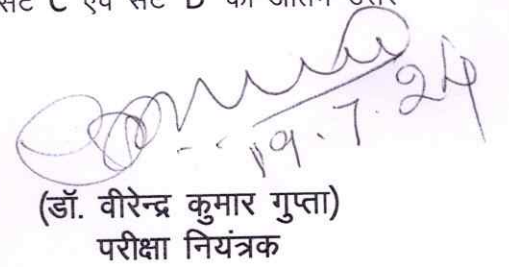 सेट C एवं सेट D की अंतिम उत्तर
19.7.24
(डॉ. वीरेन्द्र कुमार गुप्ता)
परीक्षा नियंत्रक